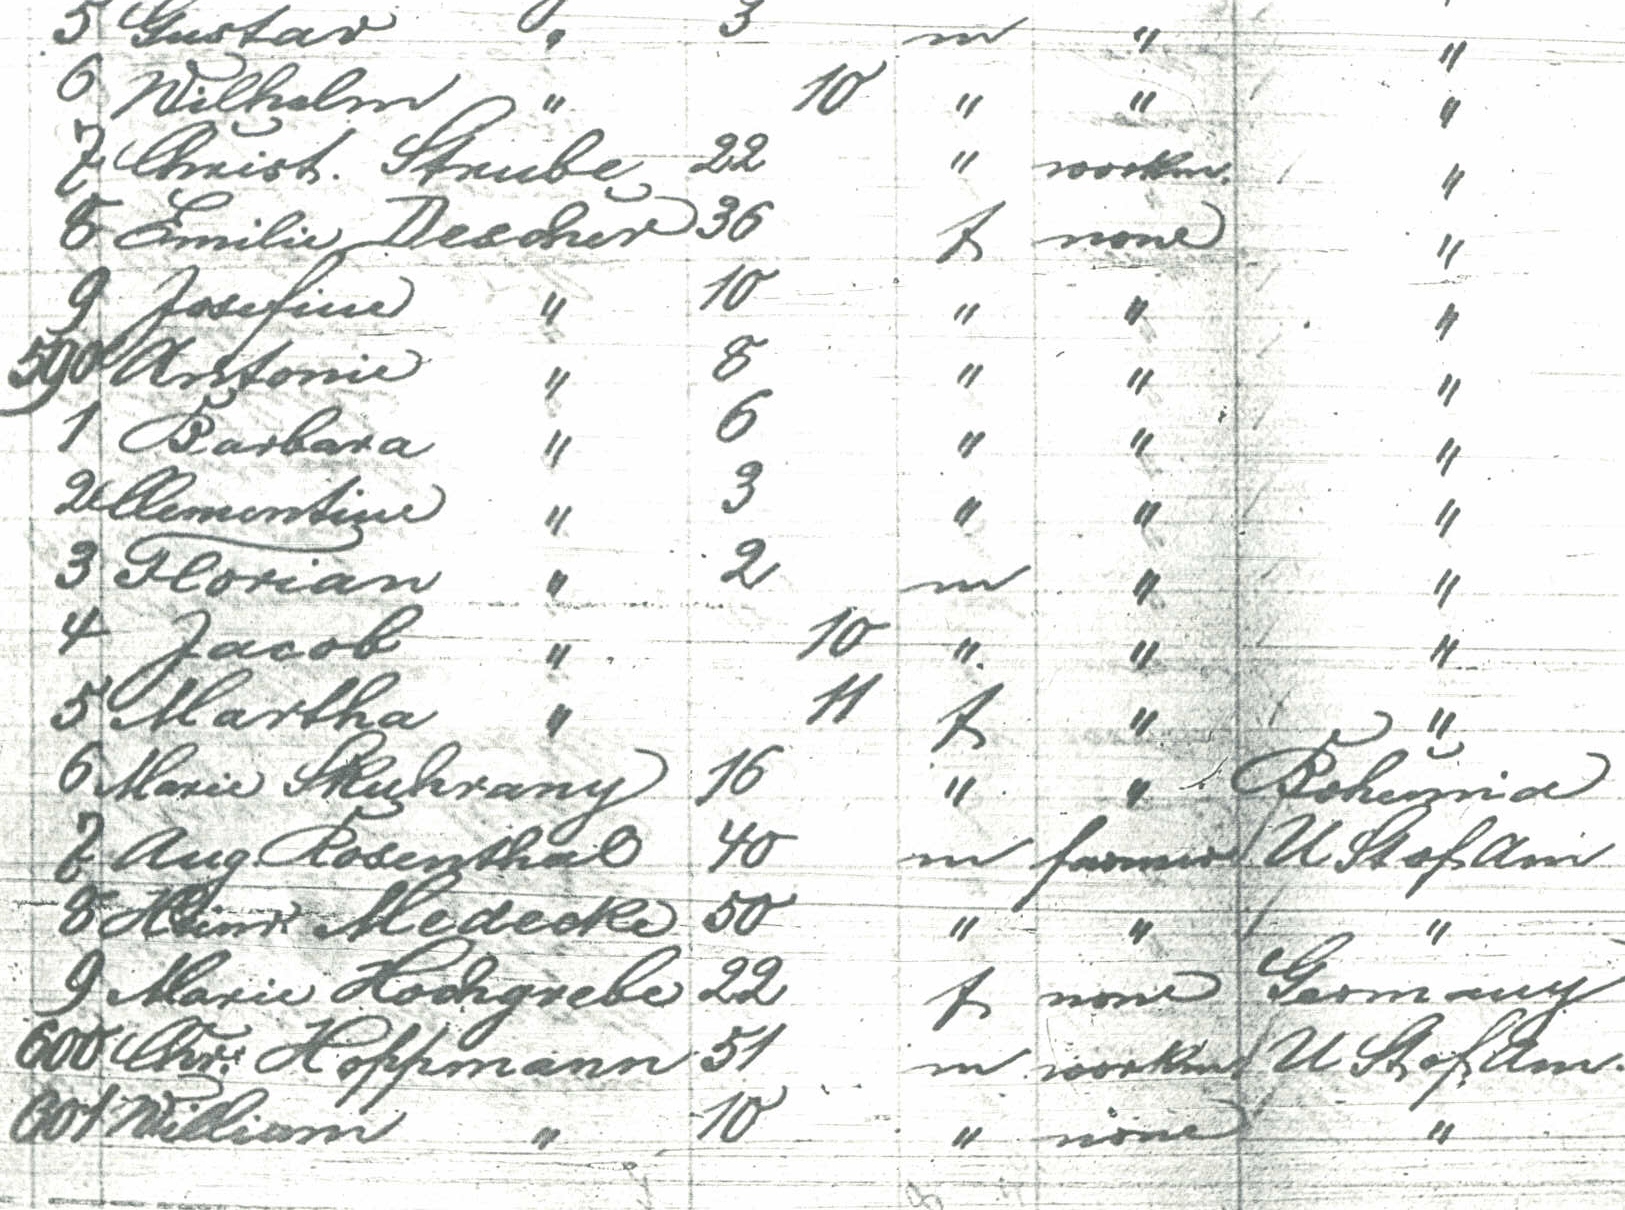 5 Gustav " 3 m " "
6 Wilhelm " 10 " " "
7 Christ. Strube 22 " workm. "
8 Emilie Descher 36 f none "
9 Josefine " 10 " " "
590 Antonie " 8 " " "
1 Barbara " 6 " " "
2 Clementine " 3 " " "
3 Florian " 2 m " "
4 Jacob " 10 " " "
5 Martha " 11 f " "
6 Marie Skuhrany 16 " " Bohemia
7 Aug Rosenthal 40 m farmer U St of Am
8 Heinr. Medecke 50 " " "
9 Marie Hochgrebe 22 f none Germany
600 Chr. Hoppmann 51 m workm U St of Am.
601 William " 10 " none "